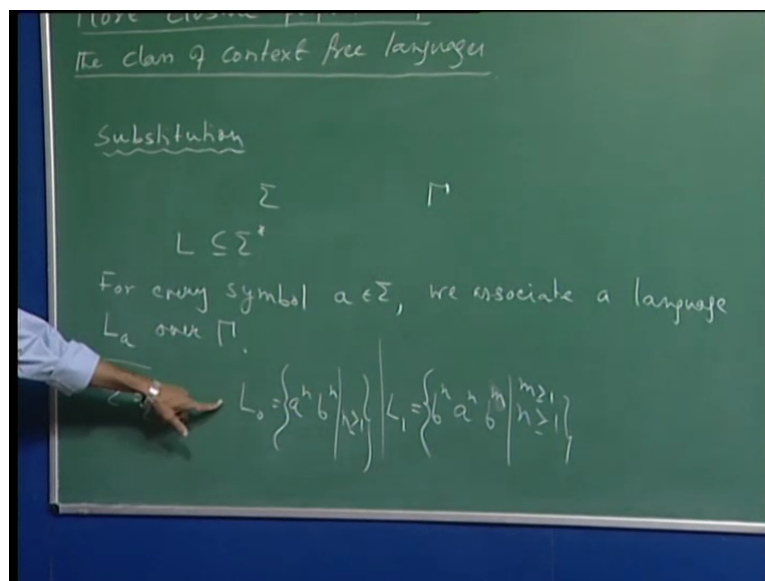 More closure properties of
the class of context free languages
Substitution
Σ Γ
L ⊆ Σ*
For every symbol a ∈ Σ, we associate a language
L_a over Γ.
L₀ = {aⁿ bⁿ | n≥1} | L₁ = {bⁿ aⁿ bᵐ | m≥1 n≥1}